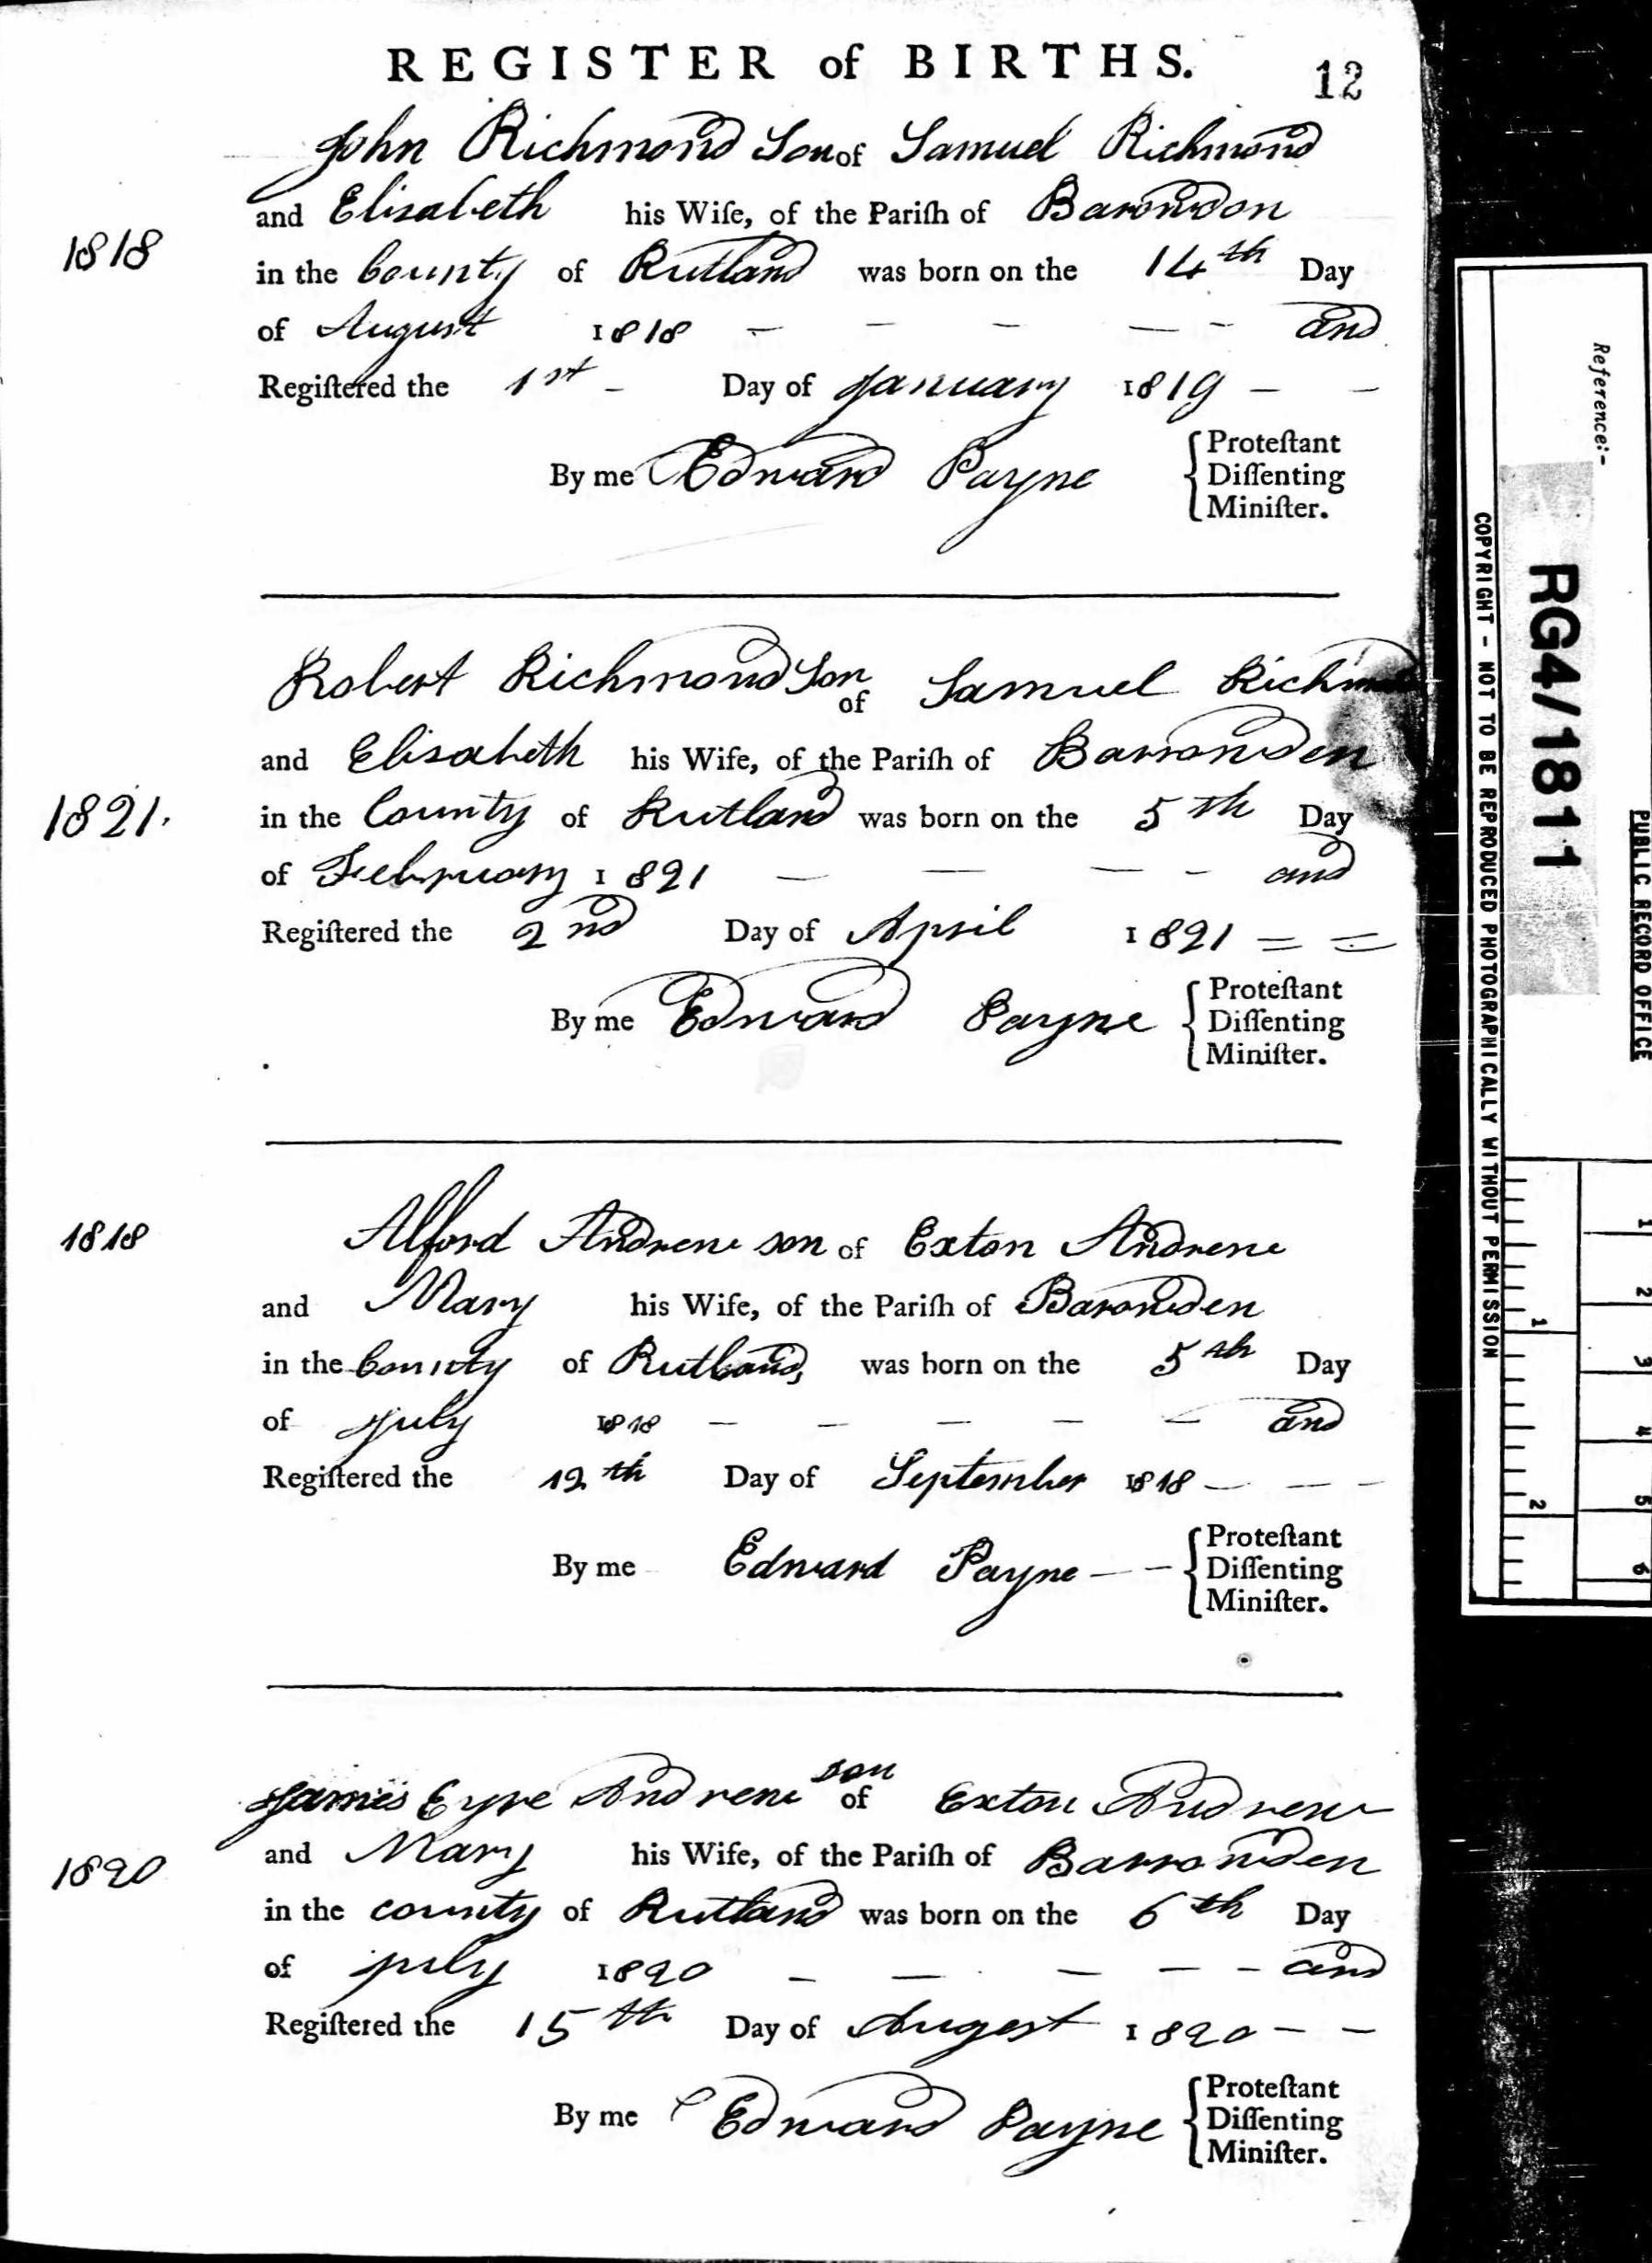 REGISTER of BIRTHS.
12
John Richmond Son of Samuel Richmond
and Elisabeth his Wife, of the Pariſh of Barowdon
1818
in the County of Rutland was born on the 14th Day
of August 1818 — — — — - and
Regiſtered the 1st - Day of January 1819 — —
By me Edward Payne { Proteſtant
Diſſenting
Miniſter.
Robert Richmond Son of Samuel Richmond
and Elisabeth his Wife, of the Pariſh of Barrowden
1821.
in the County of Rutland was born on the 5th Day
of February 1821 — — — - and
Regiſtered the 2nd Day of April 1821 = =
By me Edward Payne { Proteſtant
Diſſenting
Miniſter.
1818
Alford Andrew son of Exton Andrew
and Mary his Wife, of the Pariſh of Barowden
in the County of Rutland, was born on the 5th Day
of July 1818 — — — — — and
Regiſtered the 12th Day of September 1818 — — —
By me Edward Payne — — { Proteſtant
Diſſenting
Miniſter.
James Eyre Andrew son of Exton Andrew
and Mary his Wife, of the Pariſh of Barrowden
1820
in the county of Rutland was born on the 6th Day
of july 1820 — — — — - and
Regiſtered the 15th Day of Augest 1820 — —
By me Edward Payne { Proteſtant
Diſſenting
Miniſter.
Reference:-
RG4/1811
PUBLIC RECORD OFFICE
COPYRIGHT - NOT TO BE REPRODUCED PHOTOGRAPHICALLY WITHOUT PERMISSION
1
2
1
2
3
4
5
6